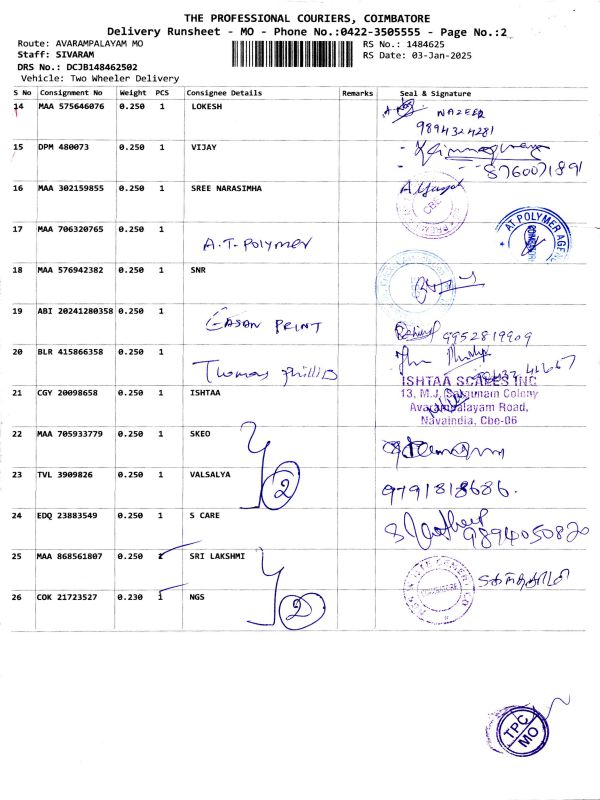 THE PROFESSIONAL COURIERS, COIMBATORE
Delivery Runsheet - MO - Phone No.:0422-3505555 - Page No.:2
Route: AVARAMPALAYAM MO
RS No.: 1484625
Staff: SIVARAM
RS Date: 03-Jan-2025
DRS No.: DCJB148462502
Vehicle: Two Wheeler Delivery
S No Consignment No Weight PCS Consignee Details Remarks Seal & Signature
14 MAA 575646076 0.250 1 LOKESH NAZEER
9894324281
15 DPM 480073 0.250 1 VIJAY
8760071891
16 MAA 302159855 0.250 1 SREE NARASIMHA
CBE
17 MAA 706320765 0.250 1 A.T. Polymer
AT POLYMER AGEN
18 MAA 576942382 0.250 1 SNR
19 ABI 20241280358 0.250 1 EASAN PRINT 9952819909
20 BLR 415866358 0.250 1 Thomas Phillip
21 CGY 20098658 0.250 1 ISHTAA
ISHTAA SCALES INC
13, M.J. Balgunain Colony
Avarampalayam Road,
Navaindia, Cbe-06
22 MAA 705933779 0.250 1 SKEO
23 TVL 3909826 0.250 1 VALSALYA 9791818686.
2
24 EDQ 23883549 0.250 1 S CARE 9894050820
25 MAA 868561807 0.250 1 SRI LAKSHMI
26 COK 21723527 0.230 1 NGS
2
TPC
MO